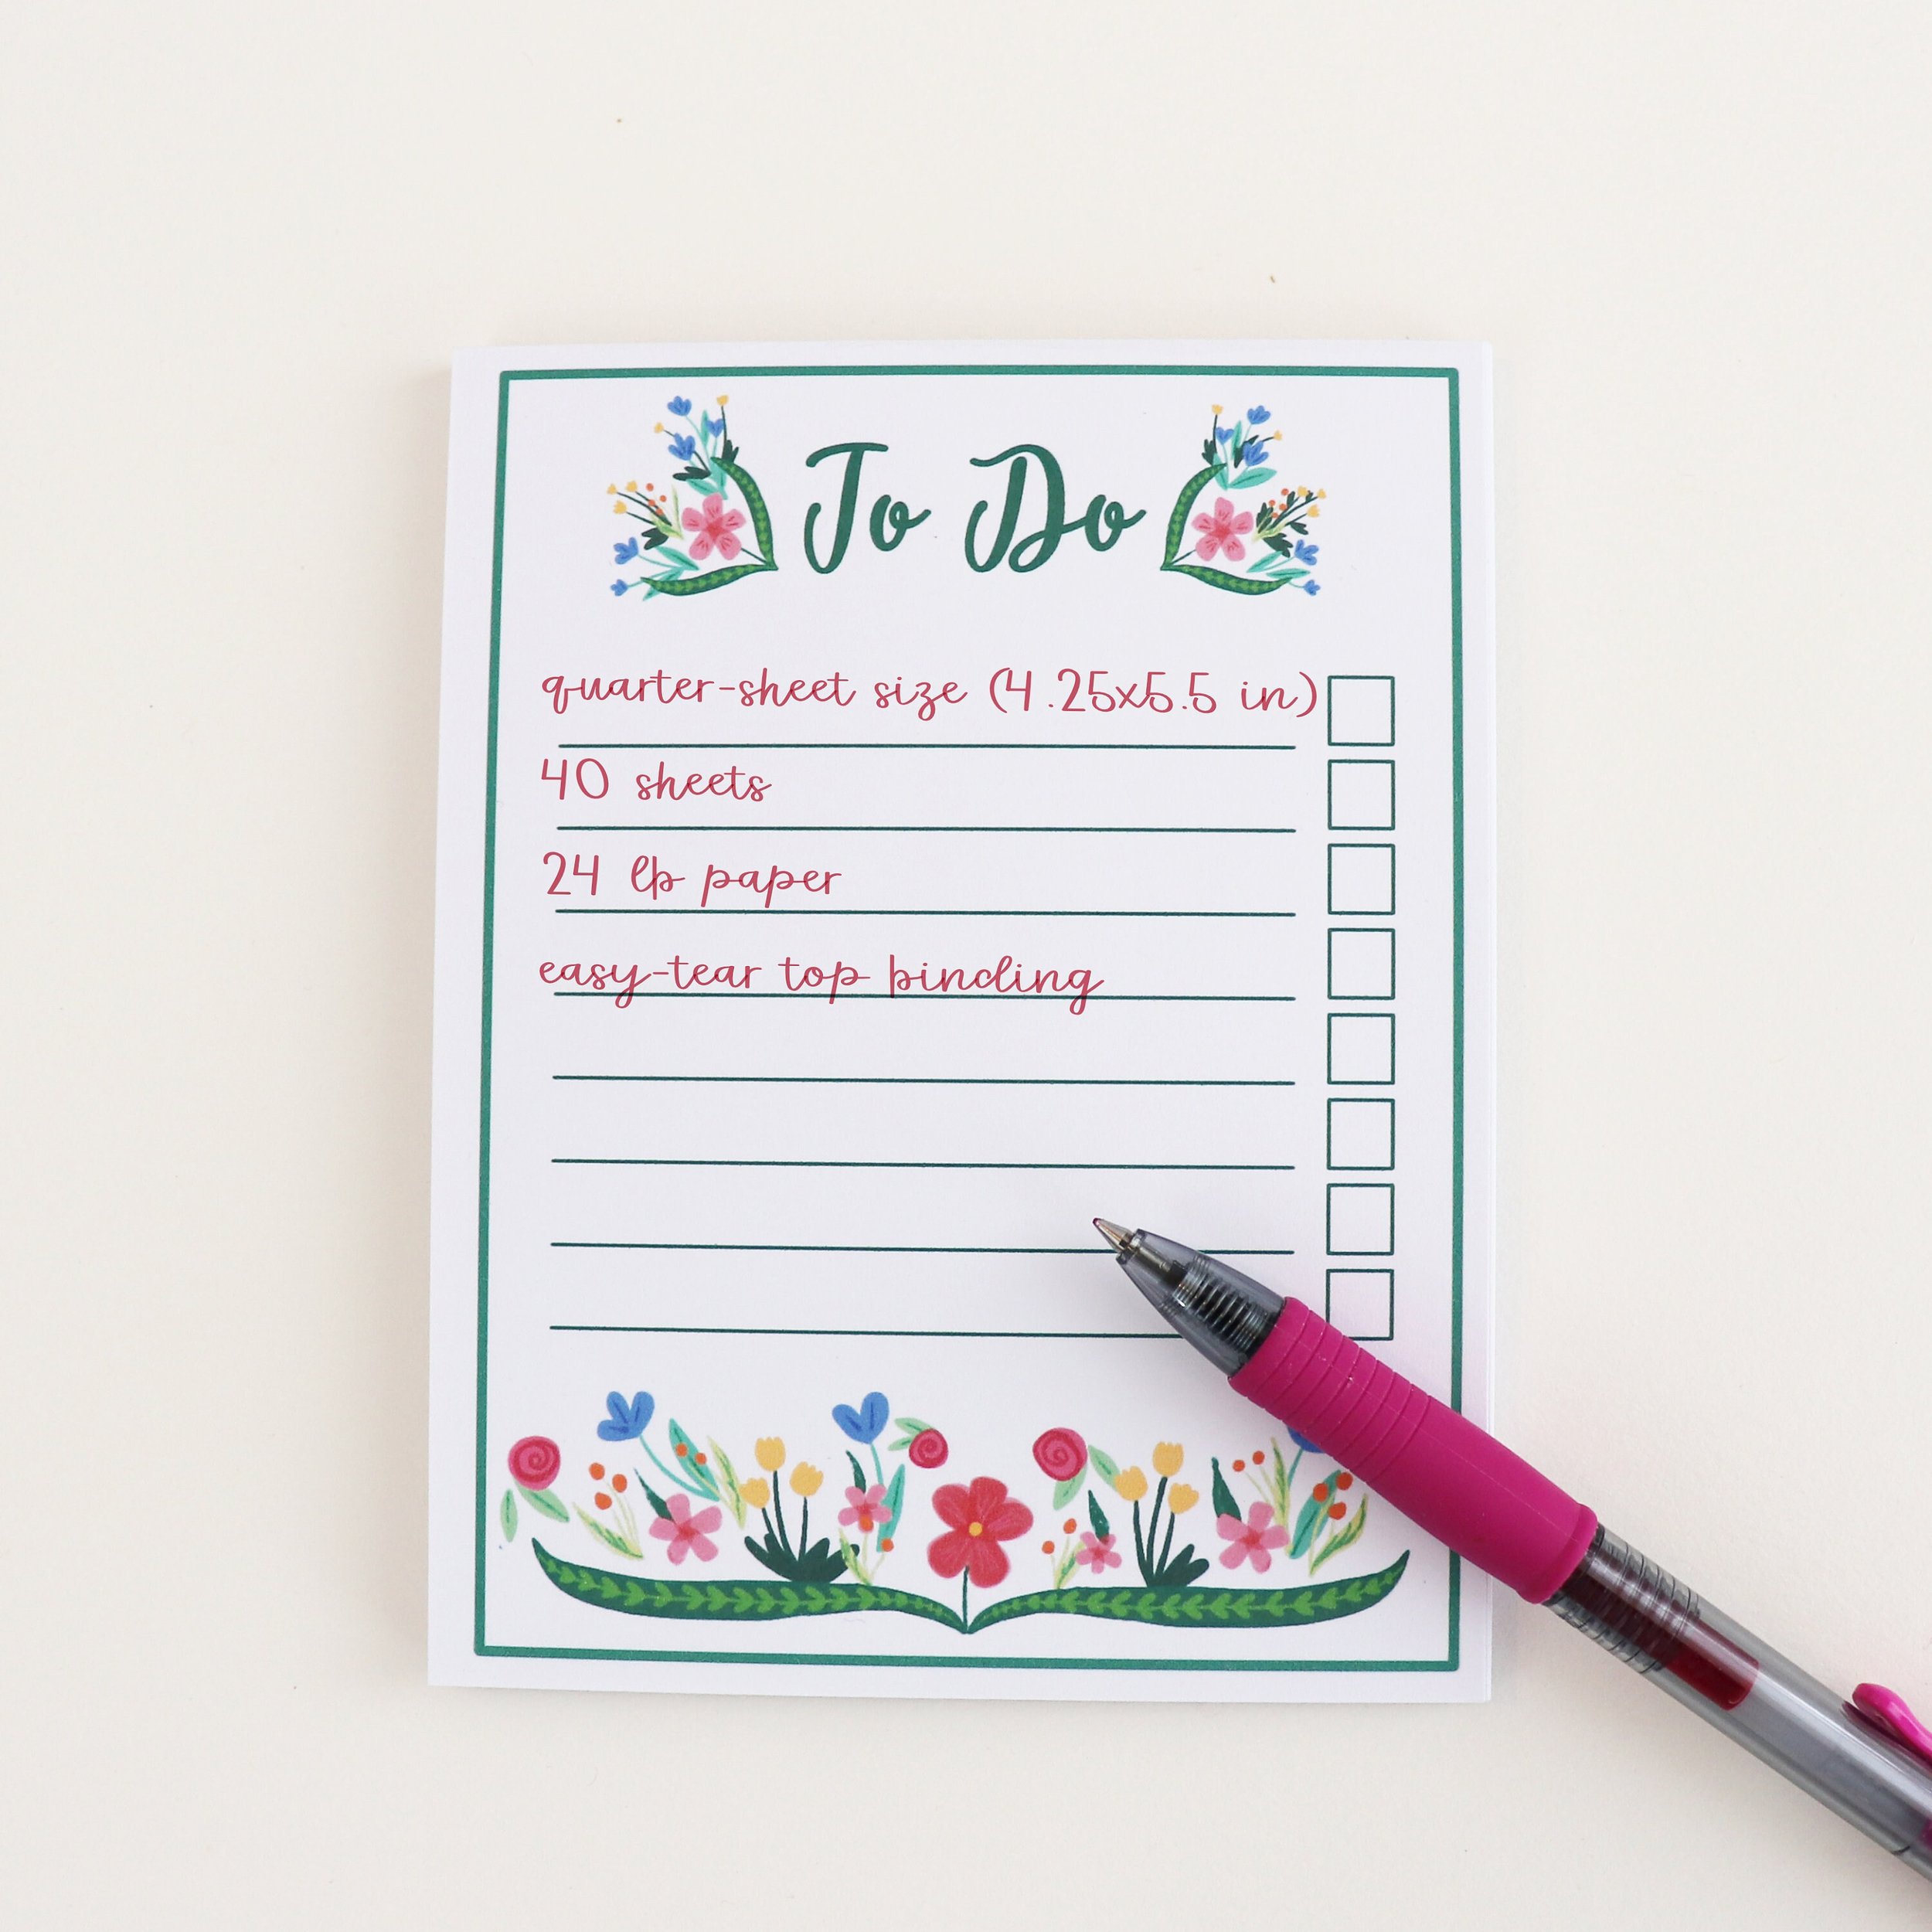 To Do
quarter-sheet size (4.25x5.5 in)
40 sheets
24 lb paper
easy-tear top binding